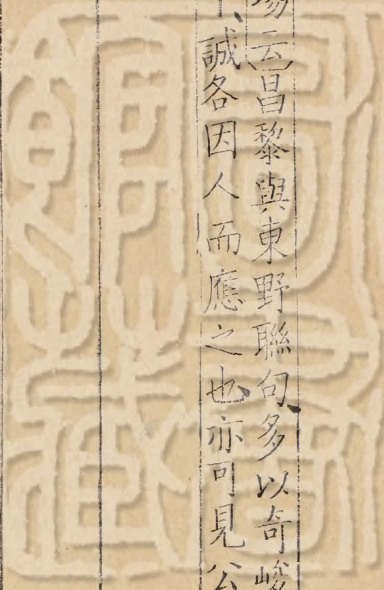 云昌黎與東野聯句多以奇峻
誠各因人而應之也亦可見公